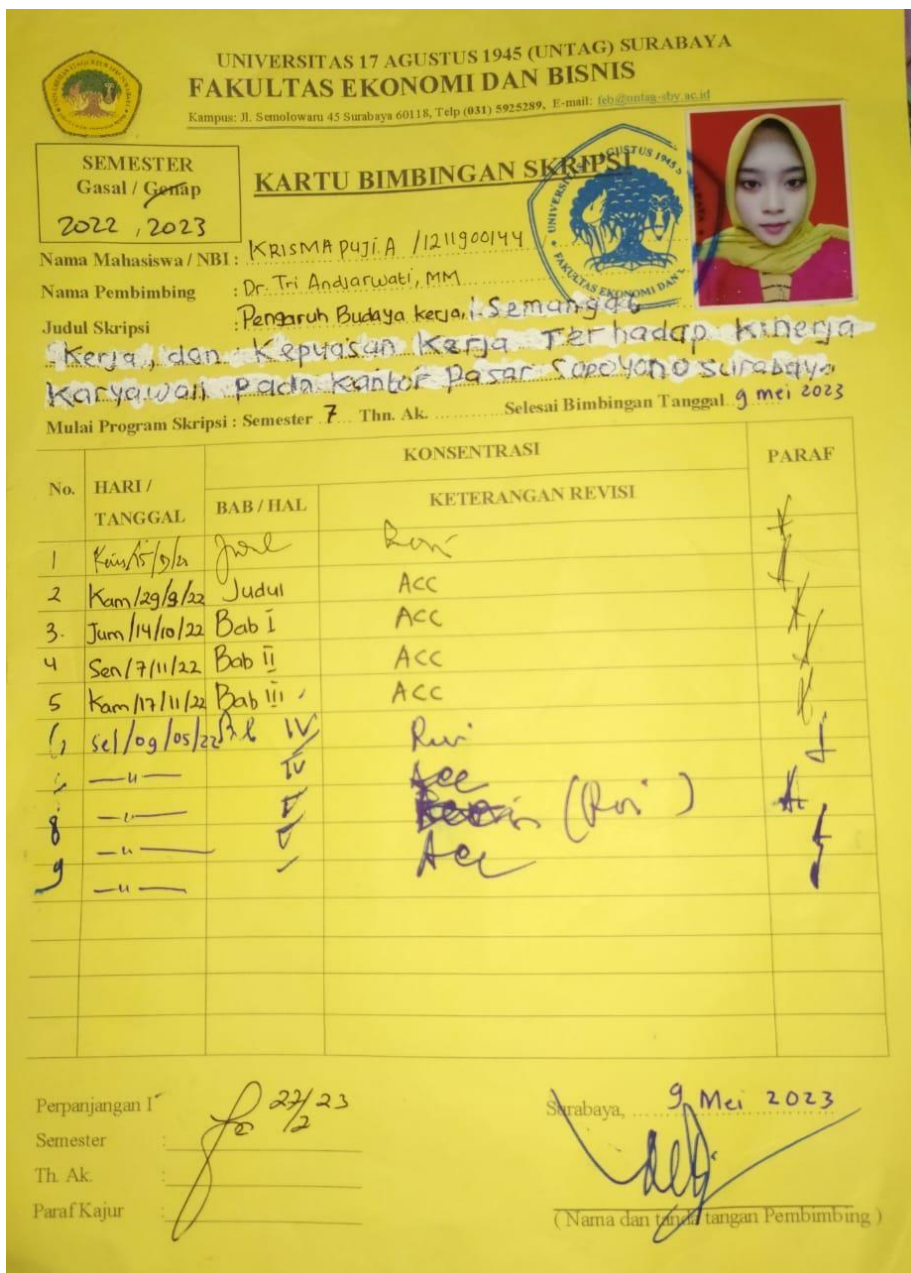 UNIVERSITAS 17 AGUSTUS 1945 (UNTAG) SURABAYA
FAKULTAS EKONOMI DAN BISNIS
Kampus: Jl. Semolowaru 45 Surabaya 60118, Telp (031) 5925289, E-mail: feb@untag-sby.ac.id
SEMESTER
Gasal / Genap
2022 , 2023
KARTU BIMBINGAN SKRIPSI
Nama Mahasiswa / NBI : KRISMA PUJI.A /1211900144
Nama Pembimbing : Dr. Tri Andjarwati, MM
Judul Skripsi : Pengaruh Budaya kerja, Semangat
Kerja, dan Kepuasan Kerja Terhadap Kinerja
Karyawan Pada Kantor Pasar Soepoyono Surabaya
Mulai Program Skripsi : Semester 7 Thn. Ak. Selesai Bimbingan Tanggal 9 mei 2023
No. HARI / TANGGAL KONSENTRASI PARAF
BAB / HAL KETERANGAN REVISI
1
2 Kam/29/9/22 Judul ACC
3. Jum/14/10/22 Bab I ACC
4 Sen/7/11/22 Bab II ACC
5 Kam/17/11/22 Bab III ACC
6 Sel/09/05/22 IV
IV Acc
8 V
9 Acc
Perpanjangan I 27/2 23
Semester :
Th. Ak. :
Paraf Kajur :
Surabaya, 9 Mei 2023
( Nama dan tanda tangan Pembimbing )